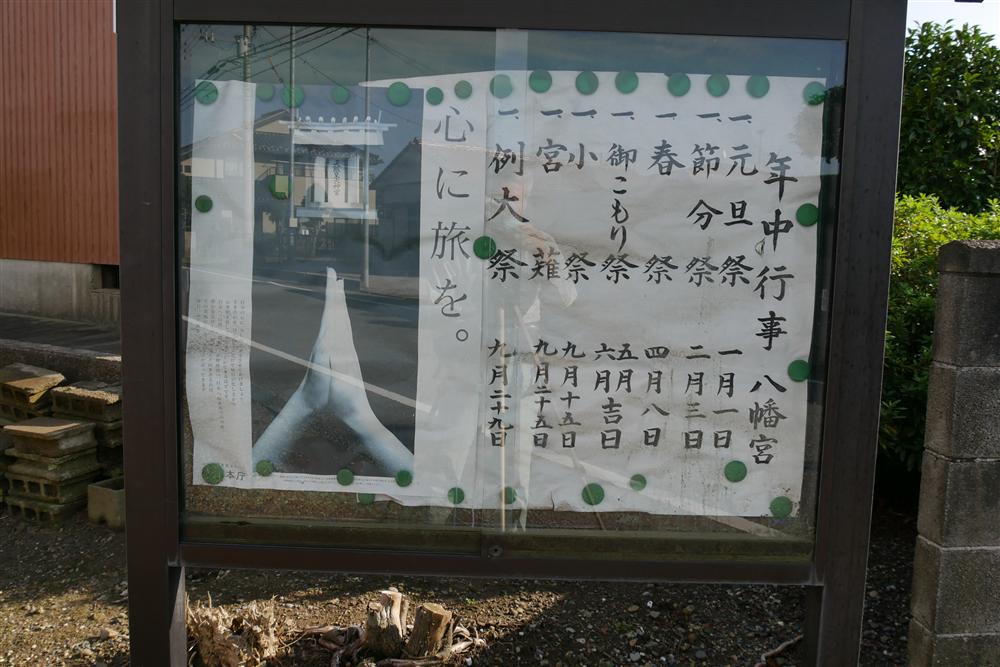 年中行事 八幡宮
一、元旦祭 一月一日
一、節分祭 二月三日
一、春祭 四月八日
一、御こもり祭 五月 六月吉日
一、小祭 九月十五日
一、宮薙 九月二十五日
一、例大祭 九月二十九日
心に旅を。
本庁